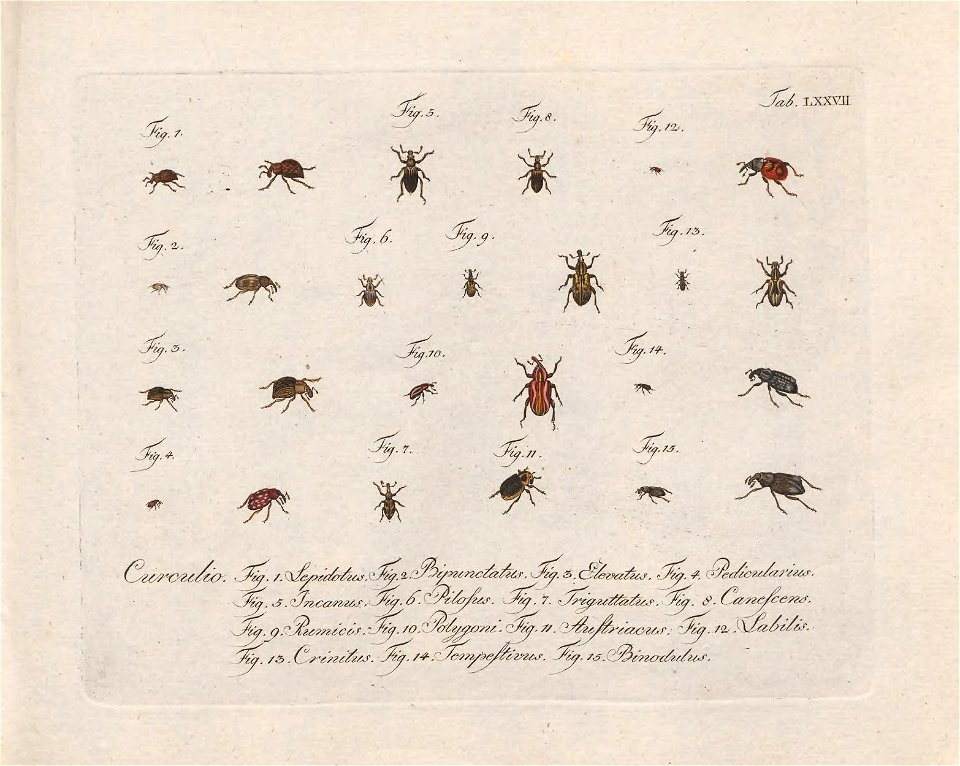 Tab. LXXVII
Fig. 1. Fig. 5. Fig. 8. Fig. 12.
Fig. 2. Fig. 6. Fig. 9. Fig. 13.
Fig. 3. Fig. 10. Fig. 14.
Fig. 4. Fig. 7. Fig. 11. Fig. 15.
Curculio. Fig. 1. Lepidotus. Fig. 2. Bipunctatus. Fig. 3. Elevatus. Fig. 4. Pedicularius.
Fig. 5. Incanus. Fig. 6. Piloſus. Fig. 7. Triguttatus. Fig. 8. Caneſcens.
Fig. 9. Rumicis. Fig. 10. Polygoni. Fig. 11. Auſtriacus. Fig. 12. Labilis.
Fig. 13. Crinitus. Fig. 14. Tempeſtivus. Fig. 15. Binodulus.